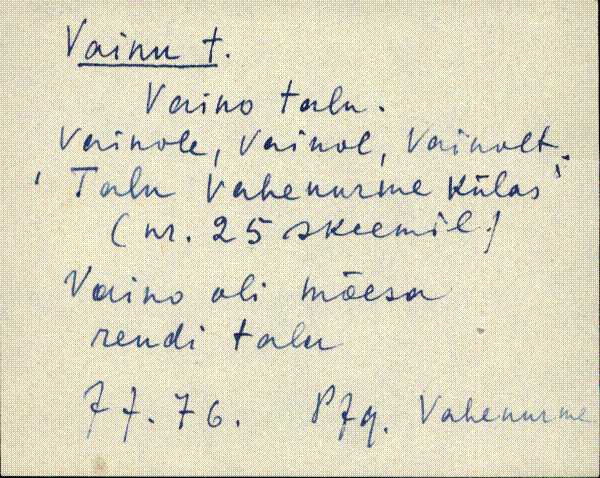 Vainu t.
Vaino talu.
Vainole, Vainol, Vainolt.
'Talu Vahenurme külas'
(nr. 25 skeemil)
Vaino oli mõesa
rendi talu
77.76. Vahenurme